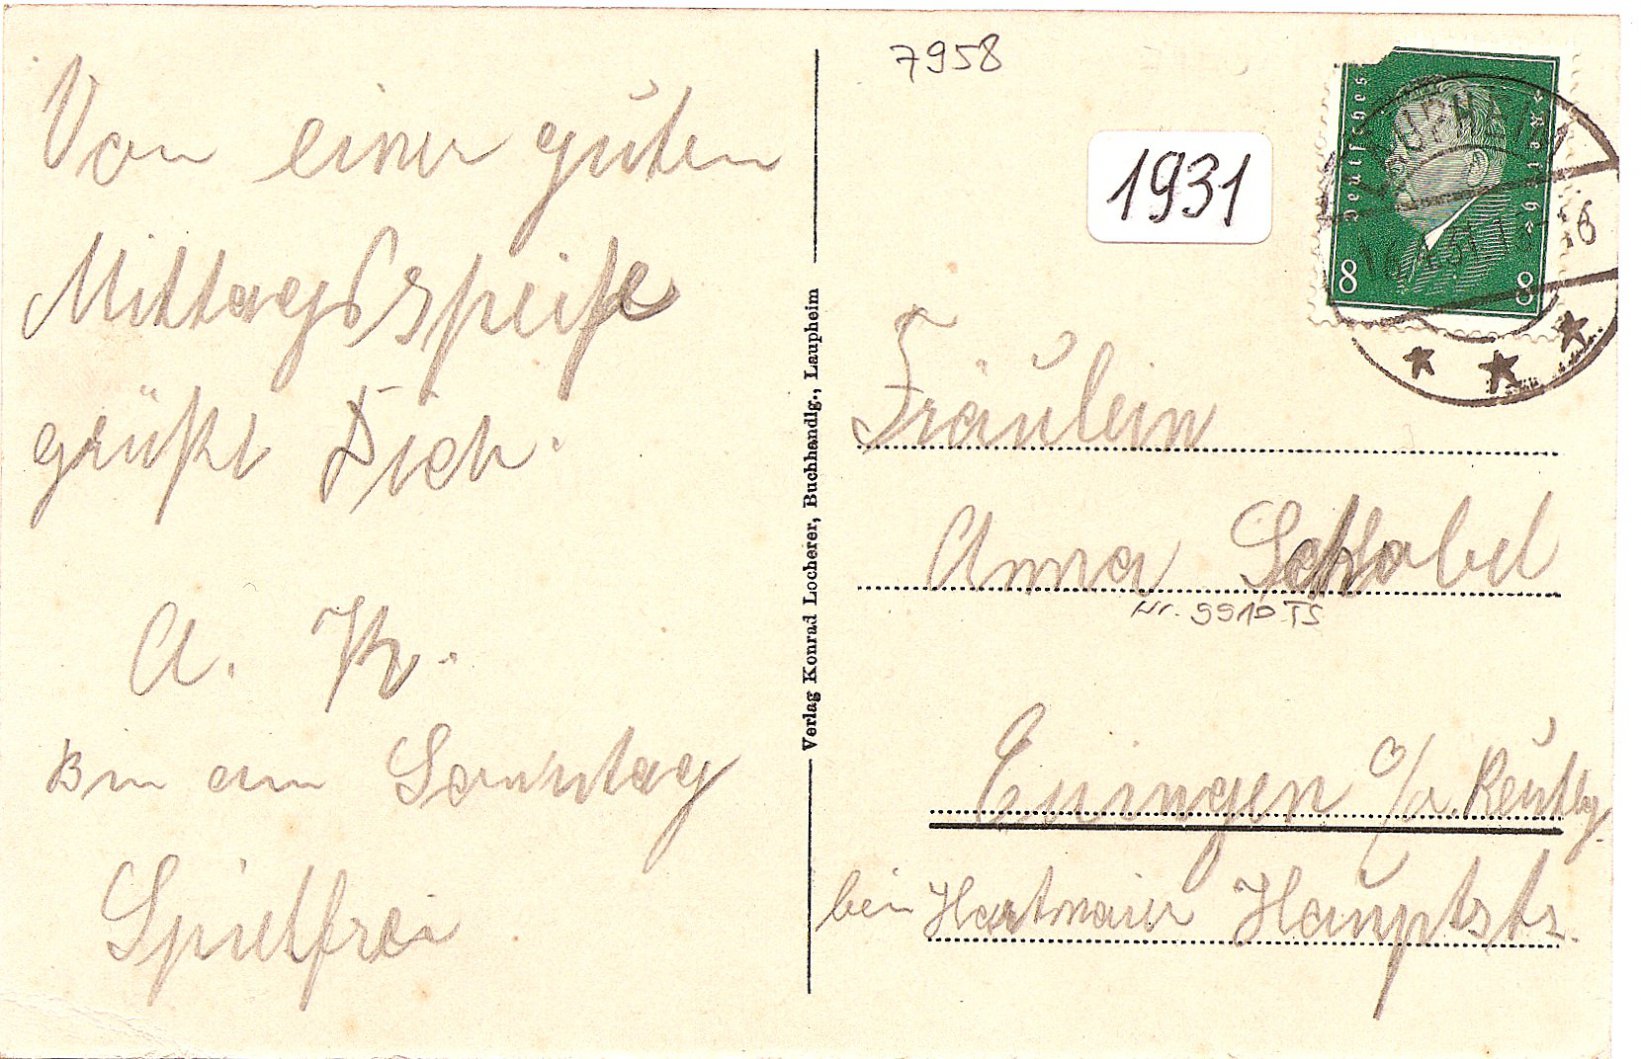 Von einer guten
Mittagsspeise
grüßt Dich.
A. K.
Bin am Sonntag
Spielfrei
Verlag Konrad Locherer, Buchhandlg., Laupheim
7958
1931
Deutsches Reich
LAUPHEIM
8
8
Fräulein
Anna Schabel
Nr. 9910 TS
Eningen a. Reutlg.
bei Hartmaier Hauptstr.